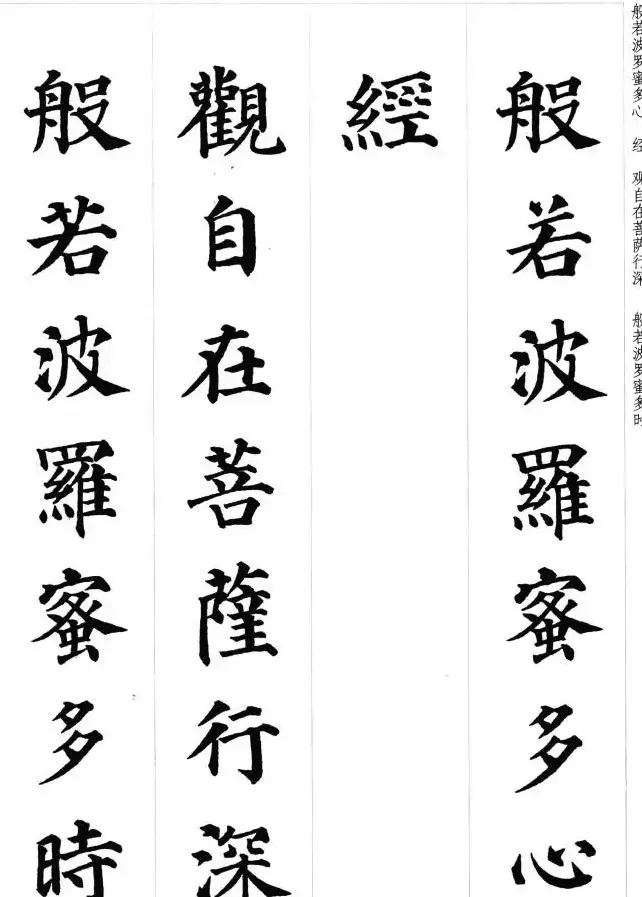 般若波羅蜜多心
經
觀自在菩薩行深
般若波羅蜜多時
般若波罗蜜多心 经 观自在菩萨行深 般若波罗蜜多时